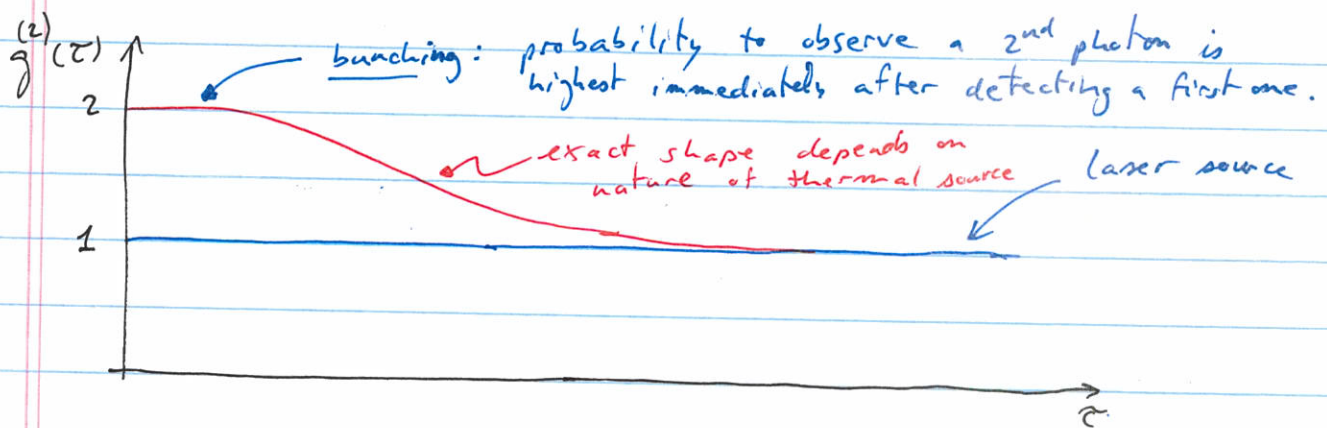 g⁽²⁾(τ)
bunching: probability to observe a 2nd photon is
highest immediately after detecting a first one.
2
exact shape depends on
nature of thermal source
laser source
1
τ